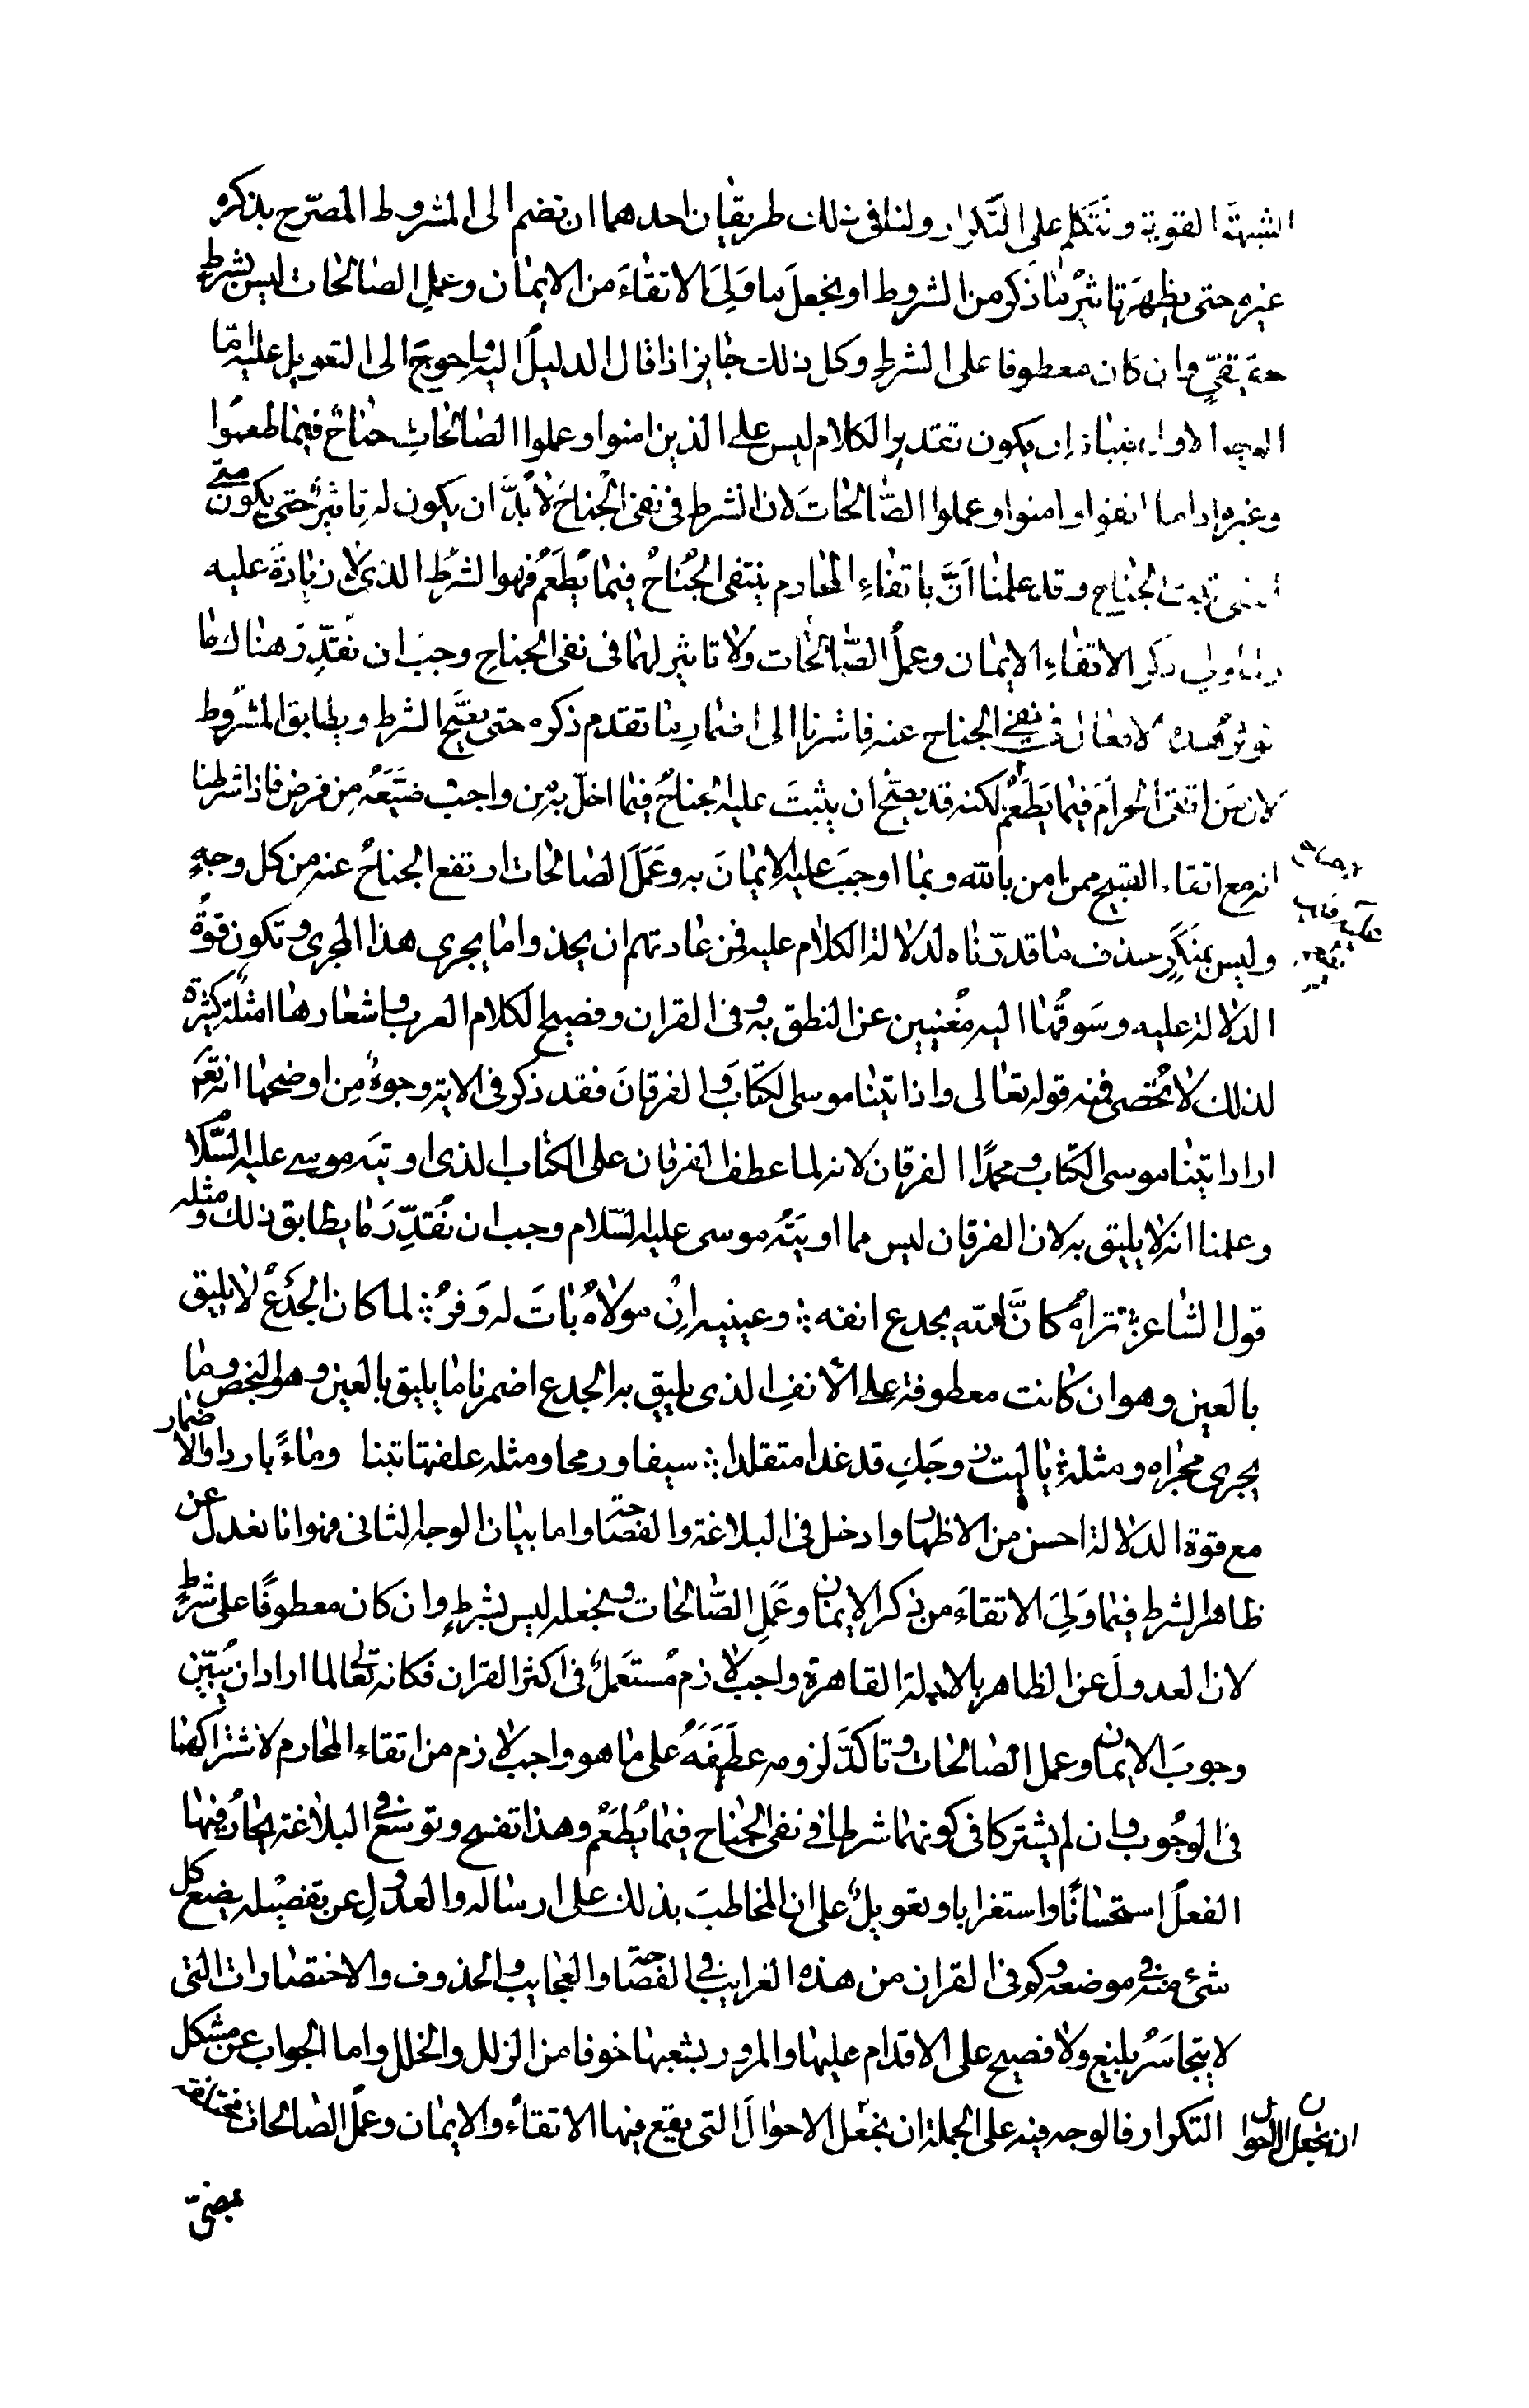 الشبهةَ القوية ونَتَكلّم على التّكرار ولنا فى ذلك طريقان احدهما ان نضم الى المشروط المصرّح بذكره
غيره حتى يظهرَ تاثيْرُ ما ذكر من الشروط او نجعلَ ما وَلِىَ الاتقاءَ من الايمان وعملِ الصالحات ليس بشرطٍ
حقيقىٍّ وان كان معطوفا على الشرطِ وكل ذلك جايز اذا قال الدليلُ اليه واحوجَ الى التعويل عليه امّا
الوجه الاول فبيانه ان يكون تقدير الكلام ليس على الذين امنوا وعملوا الصالحاتِ جناحٌ فيما طعموا
وغيره اذا ما اتقوا وامنوا وعملوا الصَّالحاتَ لان الشرط فى نفى الجُناحَ لا بُدَّ ان يكون له تاثيرٌ حتى يكون متى
انتفى ثبت الجناح وقد علمنا اَنَّ باتقاءِ المحارم ينتفى الجُناحُ فيما يُطعَمُ فهو الشرُط الذى لا زيادةَ عليه
ولما ولى ذكر الاتقاءِ الايمان وعملُ الصَّالحات ولا تاثير لهما فى نفى الجناحِ وجبَ ان نُقدِّرَ هناك ما
توثر هذه الافعال فى نفى الجناح عنه فاشرنا الى اضمارِ ما تقدم ذكره حتى يصَّح الشرط ويطابق المشرُوط
لان مَن اتقى الحرامَ فيما يَطَعْمُ لكنه قد يصّح ان يثبتَ عليه الجناحُ فيما اخلّ به مِن واجب وضَيَّعَهُ مِن فرض فاذا شرطنا
انه مع اتقاء القبيح ممن امن بالله وبما اوجبَ عليه الايمانَ به وعَمَلَ الصالحات ارتفع الجناحُ عنه من كل وجهٍ
وليس بمنَكَرٍ حذف ما قدّرناه لدلالة الكلام عليه فمن عادتهم ان يحذوا ما يجرى هذا المجرى وتكون قوةُ
الدلالة عليه وسَوقُها اليه مُغنيين عن النطق به وفى القران وفصيح الكلام العرب واشعارها امثلةٌ كثيرة
لذلك لا تُحصى فمنه قوله تعالى واذ اتينا موسى الكتابَ والفرقانَ فقد ذكر فى الاية وجوهٌ مِن اوضحها انه تعَ
اراد اتينا موسى الكتاب ومحمدًا الفرقان لانه لما عطف الفرقان على الكتاب الذى اوتيَه موسى عليه السّلامُ
وعلمنا انه لا يليق به لان الفرقان ليس مما اوتيَهُ موسى عليه السّلام وجب ان نُقدِّرَ ما يطابق ذلك ومثله
قول الشاعر تراهُ كانَّ الله يجدع انفه وعينيه اِنْ مولاهُ بَاتَ له وَفرُ لما كان الجَدَعُ لا يليق
بالعين وهو ان كانت معطوفة على الأنفِ الذى يليق به الجدع اضمرنا ما يليق بالعين وهو البخص وما
يجرى مجراه ومثله يا ليت زوجَكِ قد غدا متقلدا سيفا ورمحا ومثله علفتها تبنا وماءً باردا والاضمار
مع قوة الدلالة احسن من الاظهار وادخل فى البلاغة والفصاحة واما بيان الوجه الثانى فهو انا نعدل عن
ظاهر الشرط فيما وَلِىَ الاتقاءَ من ذكر الايمان وعَمَلِ الصَّالحات ونجعله ليس بشرطٍ وان كان معطوفًا على شرطٍ
لان العدولَ عن الظاهر بالادلة القاهرة واجب لازم مُستعَملٌ فى اكثر القران فكانه تعالى لما اراد ان يُبَيّن
وجوبَ الايمان وعمل الصالحات وتاكدَّ لزومه عطَفَهُ على ما هو واجب لازم من اتقاء المحارم لاشتراكهما
فى الوجُوب وان لم يشتركا فى كونهما شرطا فى نفى الجناح فيما يُطعَمْ وهذا تفسح وتوسّع فى البلاغة يَحَارُ فيها
الفعلُ استحسانًا واستغرابا وتعويلٌ على ان المخاطبَ بذلك على ارساله والعدولِ عن تفصيْله يضع كل
شئ منه فى موضعه وكم فى القران من هذه الغرايب فى الفصاحة والعجايب والحذوف والاختصارات التى
لا يتجاسَرُ بليغ ولا فصيح على الاقدام عليها والمرور بشعبها خوفا من الزلل والخلل واما الجواب عن مشكل
التكرار فالوجه فيه على الجملة ان نجعل الاحوالَ التى يقع فيها الاتقاءُ والايمان وعملُ الصالحات مختلفة
ان نجعل الاحوال